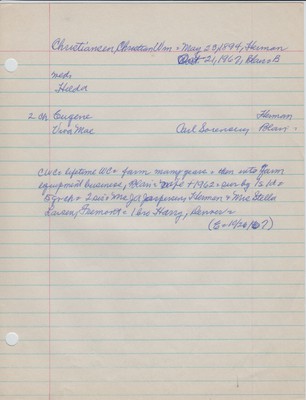 Christiansen, Christian Wm = May 23, 1894, Herman
Oct 21, 1967, Blair = B
wed:
Hulda
2 ch Eugene Herman
Vera Mae Carl Sorensen; Blair =
CWC = lifetime WC = farm many years = then into farm
equipment business, Blair = wife + 1962 = sur by 1s 1d =
5 gr ch = 2 sis = Mrs Jess Jaspersen, Herman = Mrs Stella
Larsen, Fremont = 1 bro Harry, Denver =
(E = 1920 / 67)